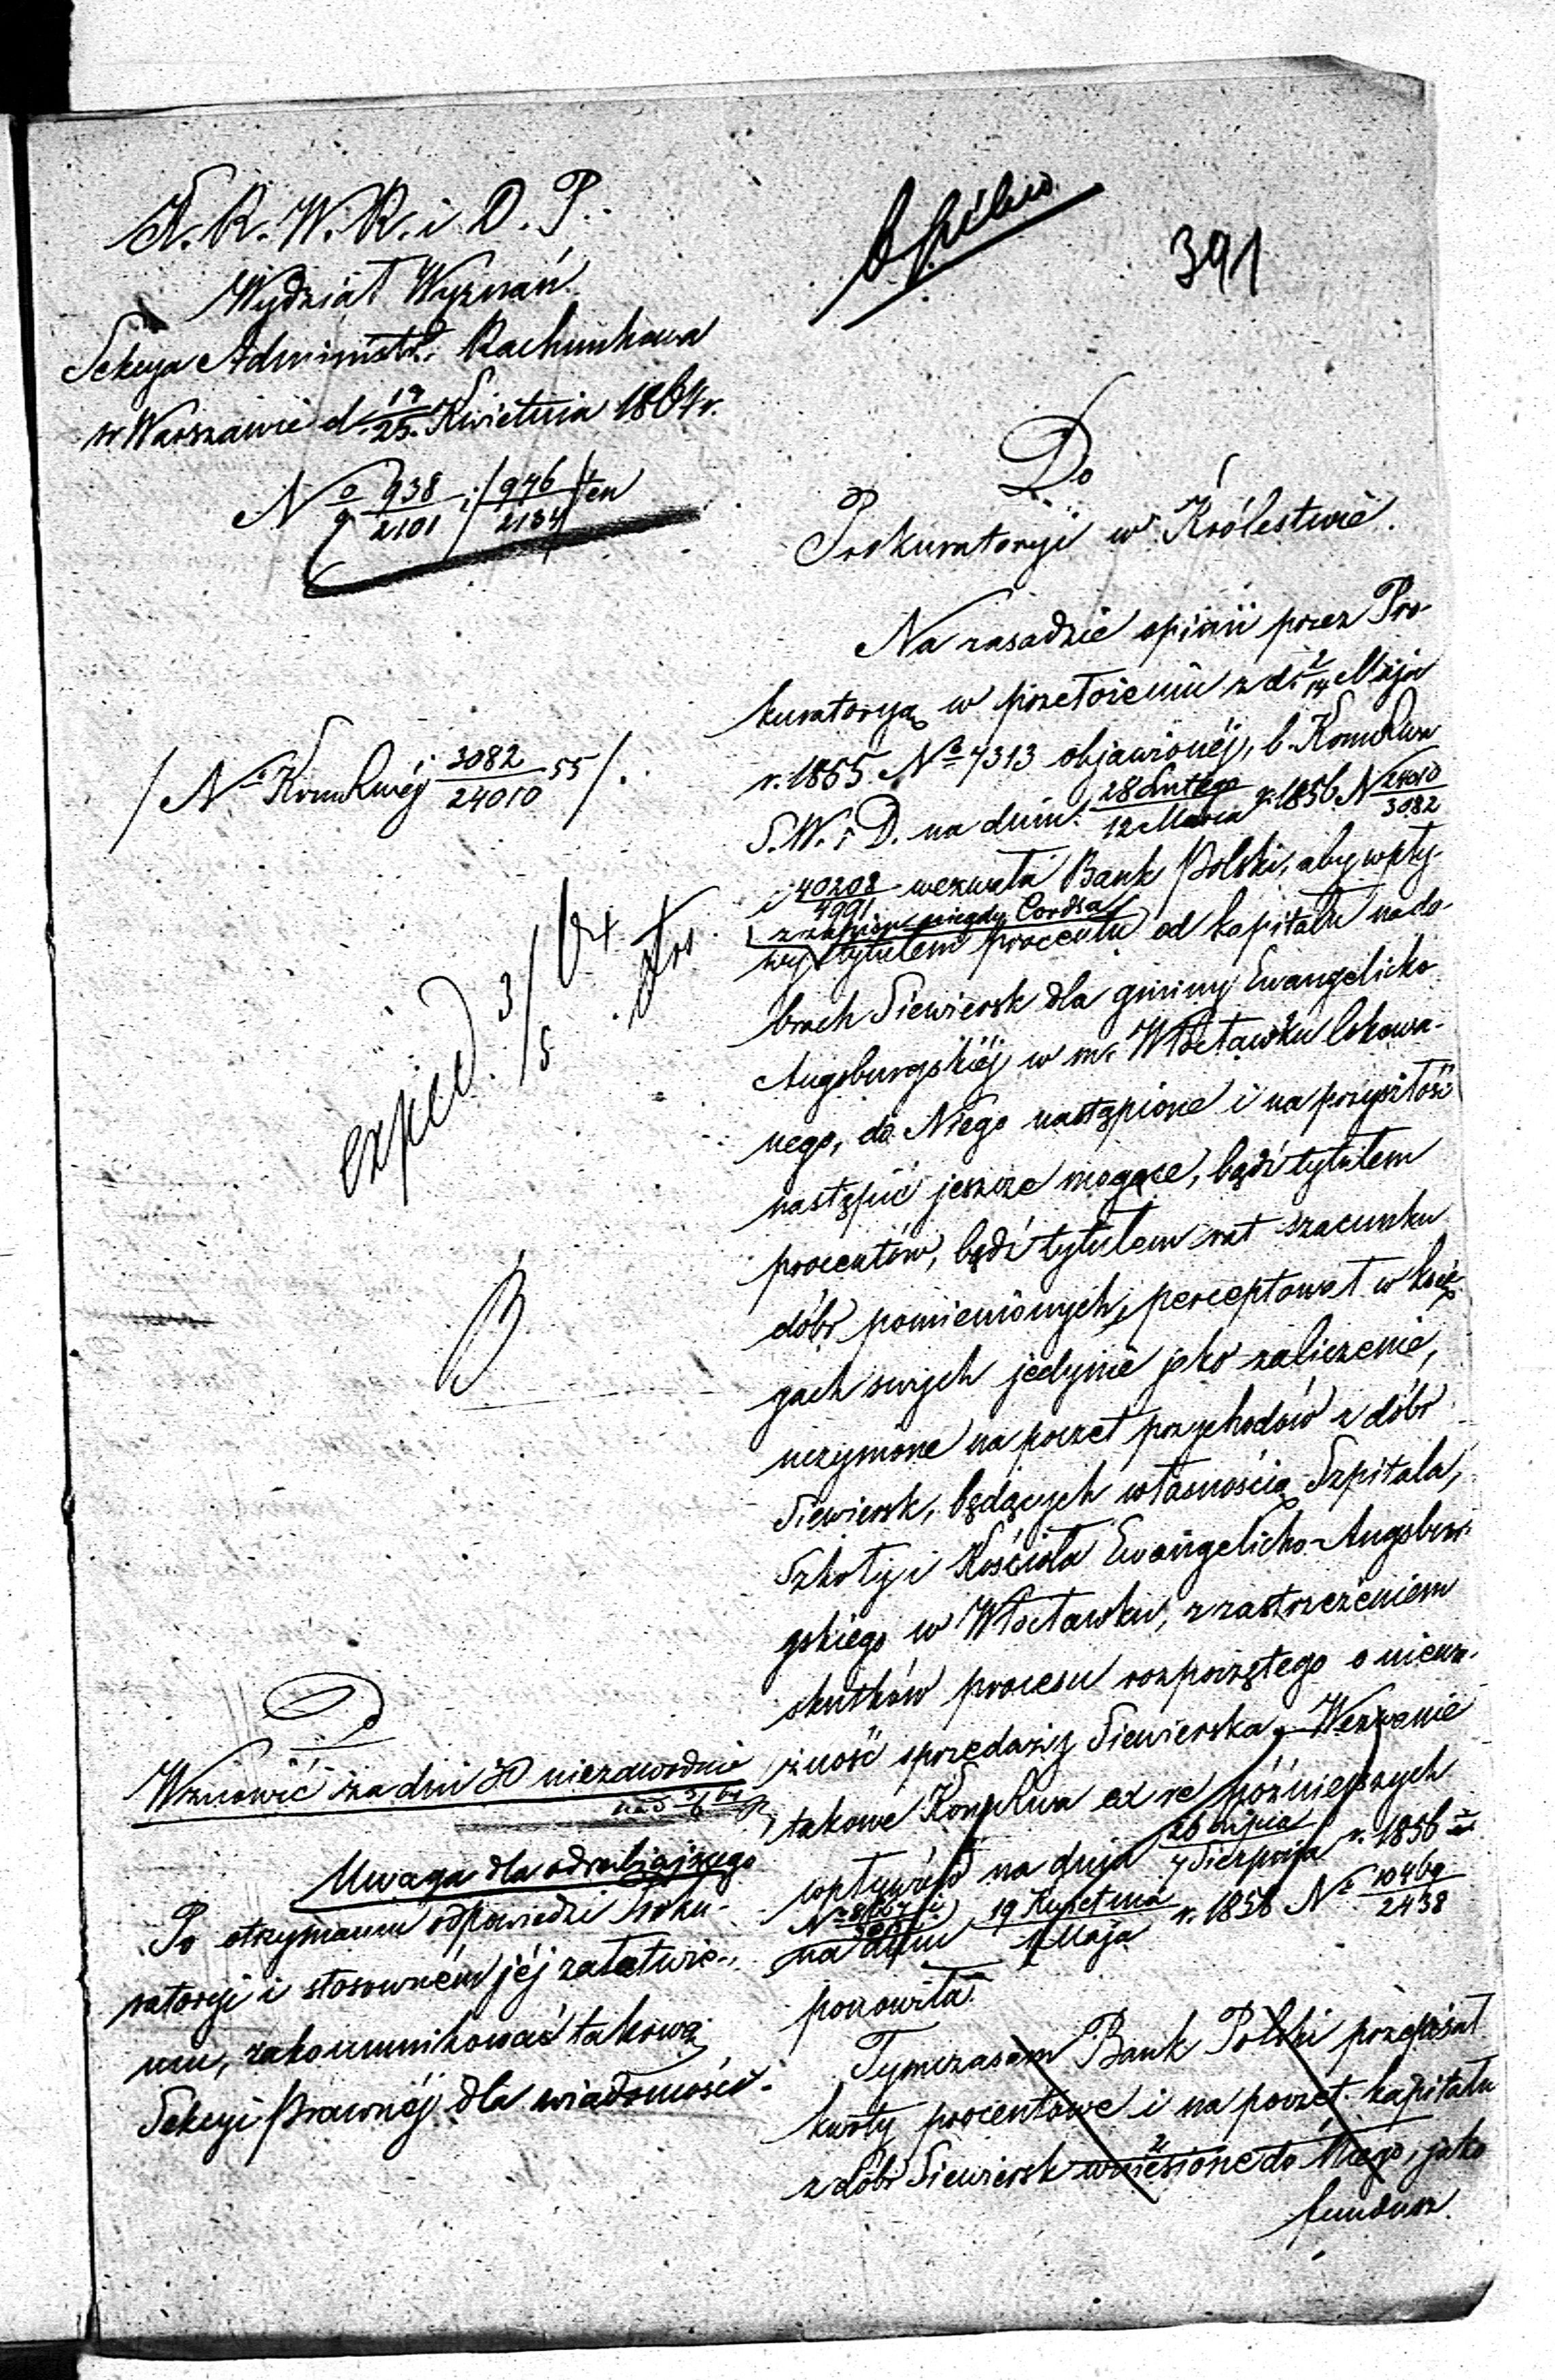 K. R. W. R. i D. P.
Wydział Wyznań
Sekcya Administr. Rachunkowa
w Warszawie d. 13/25 Kwietnia 1864 r.
No 938/2101 i 946/2134
391
Do
Prokuratoryi w Królestwie.
/No Kom Rwéj 3082/24010 55/.
exped. 3/5 64
Na zasadzie opinii przez Pro-
kuratoryą w przełożeniu z d. 2/14 Maja
r. 1855 No 7313 objawionéj, b. Kom Rwa
S. W. i D. na dniu 28 Lutego/12 Marca r. 1856 N 24010/3082
i 40208/4991 wezwała Bank Polski, aby wpły-
wy tytułem procentu od kapitału na do-
brach Siewiersk dla gminy Ewangelicko
Augsburgskiéj w m. Włocławku lokowa-
nego, do Niego nastąpione i na przyszłość
nastąpić jeszcze mogące, bądź tytułem
procentów, bądź tytułem rat szacunku
dóbr pomienionych, perceptował w księ-
gach swych jedynie jako zaliczenie,
uczynione na poczet przychodów z dóbr
Siewiersk, będących własnością Szpitala,
Szkoły i Kościoła Ewangelicko-Augsbur-
gskiego w Włocławku, z zastrzeżeniem
skutków procesu rozpoczętego o nieważ-
żność sprzedaży Siewierska. Wezwanie
takowe Kom Rwa ex re późniejszych
wpływów na dniu 26 Lipca/7 Sierpnia r. 1856
na dniu 19 Kwietnia/1 Maja r. 1858 No 10469/2438
ponowiła.
Tymczasem Bank Polski przepisał
kwoty procentowe i na poczet kapitału
z dóbr Siewiersk wniesione do Niego, jako
fundusz
Wznowić za dni 30 niezawodnie
Uwaga dla odrabiającego
Po otrzymaniu odpowiedzi Proku-
ratoryi i stosowném jéj załatwie-
niu, zakommunikować takową
Sekcyi Prawnéj dla wiadomości.